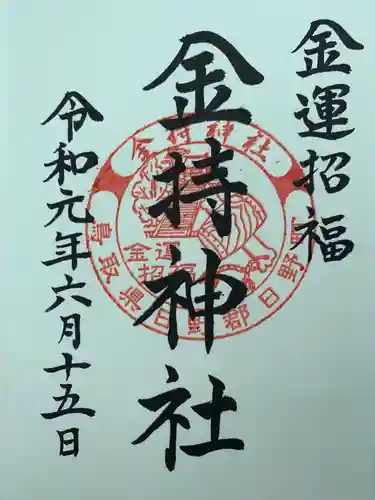 金運招福
金持神社
令和元年六月十五日
金持神社
金運
招福
鳥取県日野郡日野町